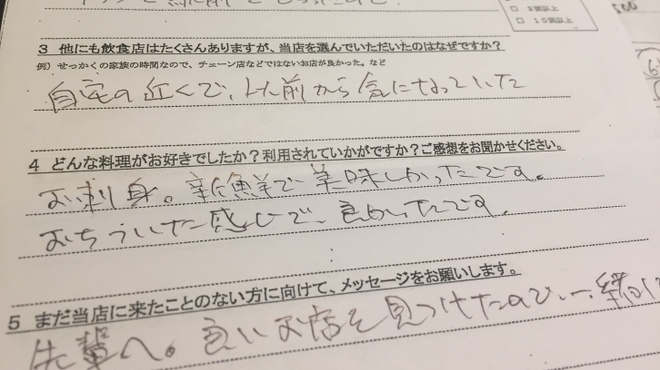 □ 5回以上
□ 10回以上
3 他にも飲食店はたくさんありますが、当店を選んでいただいたのはなぜですか？
例）せっかくの家族の時間なので、チェーン店などではないお店が良かった。など
自宅の近くで、以前から気になっていた
4 どんな料理がお好きでしたか？利用されていかがですか？ご感想をお聞かせください。
お刺身。新鮮で美味しかったです。
おちついた感じで、良かったです。
5 まだ当店に来たことのない方に向けて、メッセージをお願いします。
先輩へ。良いお店を見つけたので、一緒に